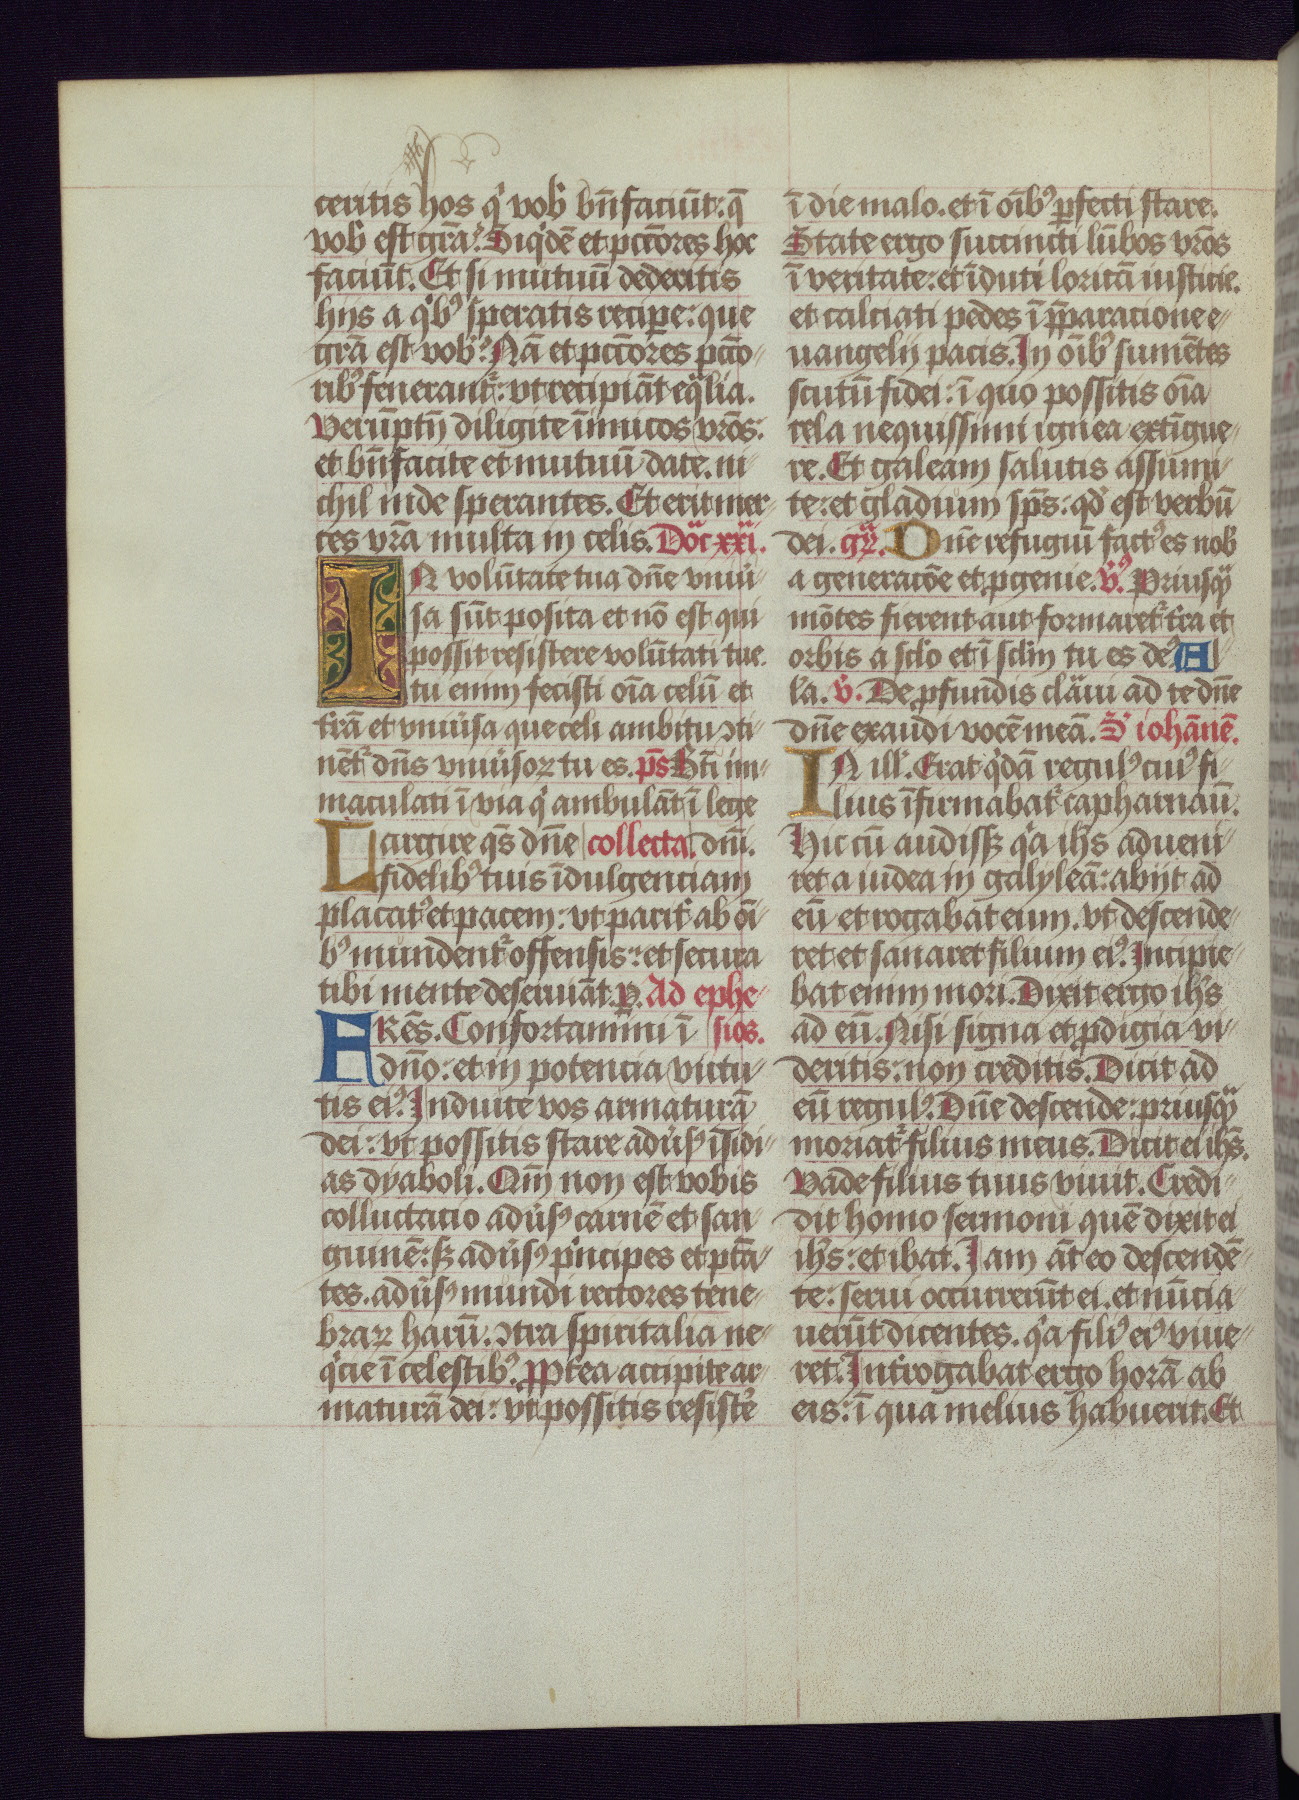 ceritis hos qͥ vob̾ bn̄faciūt: q̄
vob̾ est gr̄a? Siqͥdē et pccōres hoc
faciūt. Et si mutuū dederitis
hijs a qͥbꝰ speratis recipe: que
gr̄a est vob̾? Nā et pccōres pccō-
ribꝰ fenerantᷣ: vt recipiāt eq̄lia.
Verūptn̄ diligite īimicos vr̄os:
et bn̄facite et mutuū date. ni-
chil inde sperantes. Et erit mer-
ces vr̄a multa in celis. Doͣc xxiͣ.
IN volūtate tua dn̄e vniū-
sa sūt posita et nō est qui
possit resistere volūtati tue.
tu enim fecisti oīa celū et
tr̄a et vniūsa que celi ambitu ↄti-
nētᷣ dn̄s vniūsoꝝ tu es. ps̄ Bt̄i im-
maculati ī via qͥ ambulāt ī lege
Largire qs̄ dn̄e collecta. dn̄i.
fidelibꝰ tuis īdulgenciam
placatꝰ et pacem: vt parit̾ ab oī-
bꝰ mundentᷣ offensis: et secura
tibi mente deseruāt. ꝑ. Ad ephe-
FRēs. Confortamini ī sios.
dn̄o: et in potencia virtu-
tis eiꝰ. Induite vos armaturā
dei: vt possitis stare adūsꝰ īsidi-
as dyaboli. Qm̄ non est vobis
colluctacio adūsꝰ carnē et san-
guinē: sꝫ adūsꝰ pͥncipes et pt̄a-
tes. adūsꝰ mundi rectores tene-
braꝝ harū. ↄtra spiritalia ne-
qͥcie ī celestibꝰ. ꝓpt̾ea accipite ar-
maturā dei: vt possitis resist̾e
ī die malo. et ī oībꝰ ꝑfecti stare.
State ergo succincti lūbos vr̄os
ī veritate: et īduti loricā iusticie.
et calciati pedes ī p̄paracione e-
uangelij pacis. In oībꝰ sumētes
scutū fidei: ī quo possitis oīa
tela nequissimi ignea extīgue-
re. Et galeam salutis assumi-
te: et gladium sps̄: qd̾ est verbū
dei. gͣr. Dn̄e refugiū factꝰ es nob̾
a generacōe et ꝓgenie. v̾ꝰ. Priusqͣ
mōtes fierent aut formaretᷣ tr̄a et
orbis a sclo et ī sclm̄ tu es deꝰ Al-
la. v̾. De ꝓfundis claͣui ad te dn̄e
dn̄e exaudi vocē meā. S' iohānē.
IN ill̾. Erat qͥdā regulꝰ cuiꝰ fi-
lius īfirmabatᷣ capharnaū.
Hic cū audissꝫ qͥa ihs̄ adueni-
ret a iudea in galyleā: abijt ad
eū et rogabat eum. vt descende-
ret et sanaret filium eiꝰ. Incipie-
bat enim mori. Dixit ergo ihs̄
ad eū. Nisi signa et ꝓdigia vi-
deritis: non creditis. Dicit ad
eū regulꝰ. Dn̄e descende: priusqͣ
moriatᷣ filius meus. Dicit ei ihs̄.
Vade filius tuus viuit. Credi-
dit homo sermoni quē dixit ei
ihs̄: et ibat. Iam āt eo descendē-
te: serui occurrerūt ei. et nūcia-
uerūt dicentes. qͥa filiꝰ eiꝰ viue-
ret. Int̾rogabat ergo horā ab
eis: ī qua melius habuerit. Et